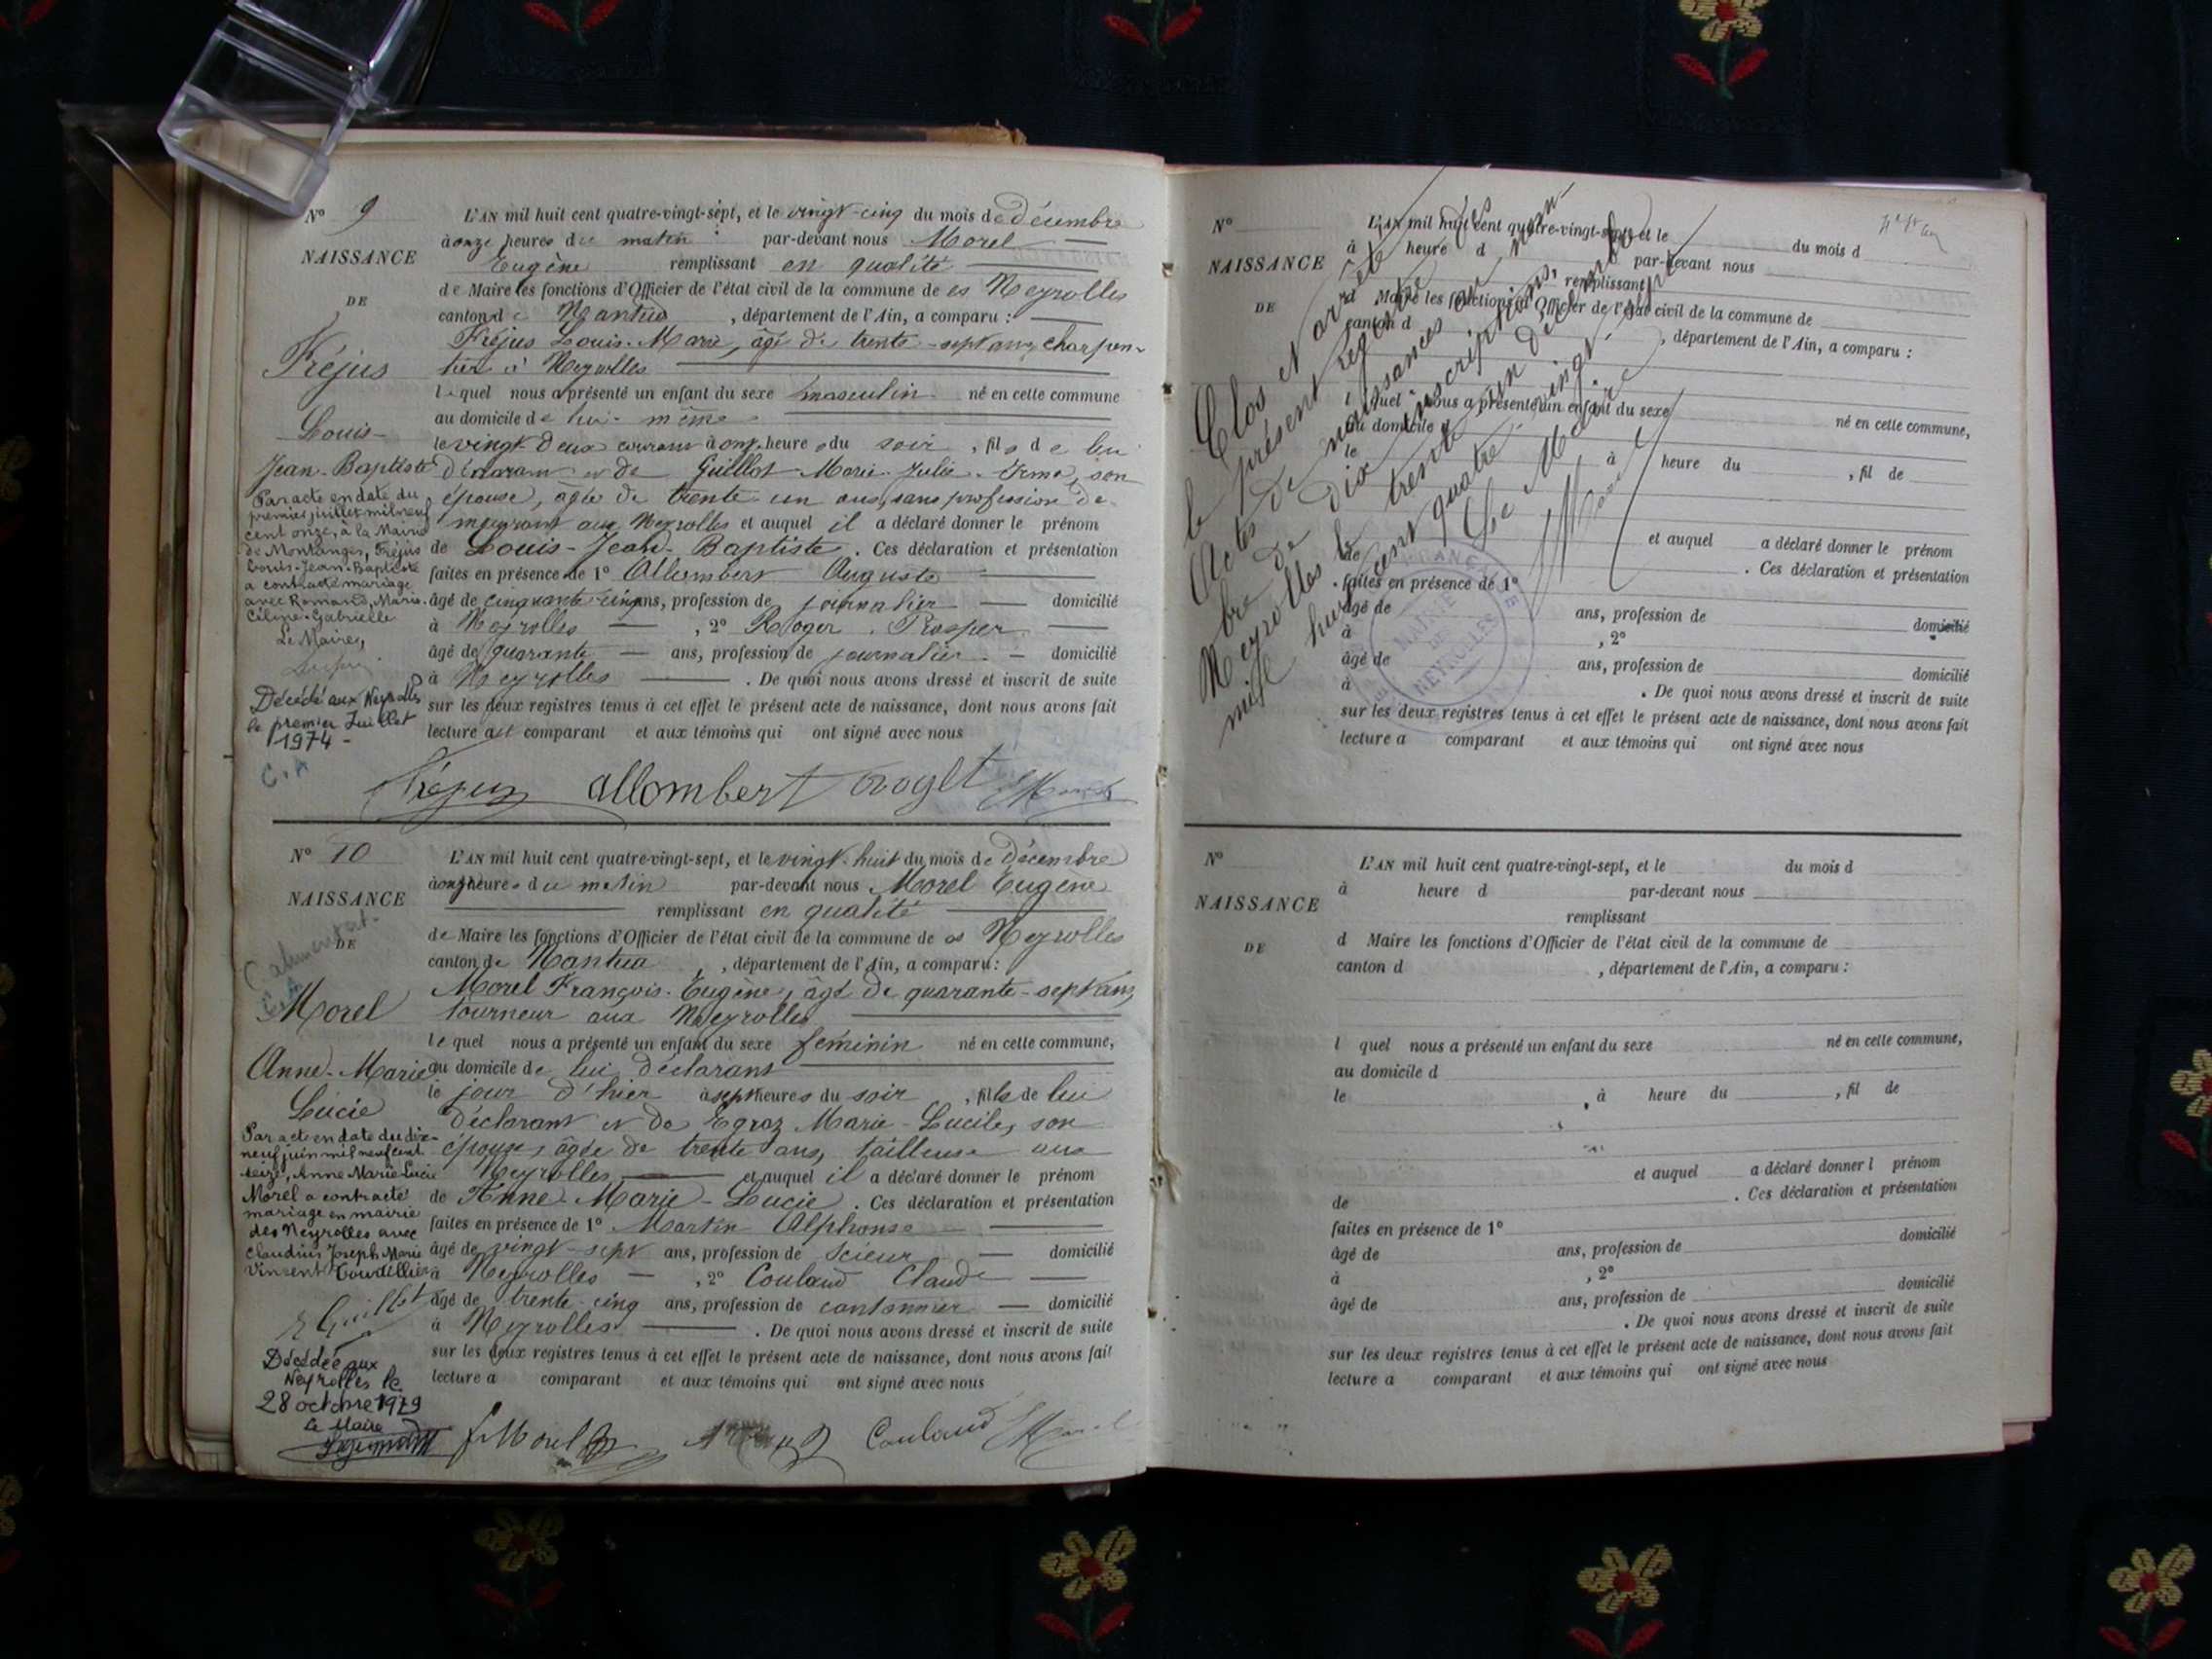 N° 9
L'AN mil huit cent quatre-vingt-sept, et le vingt-cinq du mois de Décembre
à onze heures du matin par-devant nous Morel
NAISSANCE
Eugène remplissant en qualité
de Maire les fonctions d'Officier de l'état civil de la commune de es Neyrolles
DE
canton de Nantua, département de l'Ain, a comparu :
Fréjus Louis-Marie, âgé de trente-sept ans, charpen-
Fréjus
tier à Neyrolles
lequel nous a présenté un enfant du sexe masculin né en cette commune
au domicile de lui-même
Louis-
le vingt-deux courant à onze heures du soir, fils de lui
Jean-Baptiste
déclarant et de Guillot Marie-Julie-Irma, son
épouse, âgée de trente un ans, sans profession de-
meurant aux Neyrolles et auquel il a déclaré donner le prénom
de Louis-Jean-Baptiste. Ces déclaration et présentation
faites en présence de 1° Allombert Auguste
âgé de cinquante-cinq ans, profession de journalier domicilié
à Neyrolles, 2° Roger Prosper
âgé de quarante ans, profession de journalier domicilié
à Neyrolles. De quoi nous avons dressé et inscrit de suite
sur les deux registres tenus à cet effet le présent acte de naissance, dont nous avons fait
lecture au comparant et aux témoins qui ont signé avec nous
Par acte en date du
premier juillet mil neuf
cent onze, à la Mairie
de Montanges, Fréjus
Louis-Jean-Baptiste
a contracté mariage
avec Romand, Marie-
Céline-Gabrielle
Le Maire,
Décédé aux Neyrolles
le premier Juillet
1974 -
C.A
Fréjus allombert
N° 10
L'AN mil huit cent quatre-vingt-sept, et le vingt-huit du mois de Décembre
à onze heures du matin par-devant nous Morel Eugène
NAISSANCE
remplissant en qualité
DE
de Maire les fonctions d'Officier de l'état civil de la commune de es Neyrolles
canton de Nantua, département de l'Ain, a comparu :
Morel François-Eugène, âgé de quarante-sept ans,
Morel
tourneur aux Neyrolles
lequel nous a présenté un enfant du sexe féminin né en cette commune,
Anne-Marie
au domicile de lui déclarant
Lucie
le jour d'hier à sept heures du soir, fille de lui
déclarant et de Egraz Marie-Lucile, son
épouse, âgée de trente ans, tailleuse aux
Neyrolles, et auquel il a déclaré donner le prénom
de Anne Marie-Lucie. Ces déclaration et présentation
faites en présence de 1° Martin Alphonse
âgé de vingt-sept ans, profession de scieur domicilié
à Neyrolles, 2° Couland Claude
âgé de trente-cinq ans, profession de cantonnier domicilié
à Neyrolles. De quoi nous avons dressé et inscrit de suite
sur les deux registres tenus à cet effet le présent acte de naissance, dont nous avons fait
lecture a comparant et aux témoins qui ont signé avec nous
Par acte en date du dix-
neuf juin mil neuf cent
seize, Anne Marie Lucie
Morel a contracté
mariage en mairie
des Neyrolles avec
Claudius Joseph Marie
Vincent
Décédée aux
Neyrolles le
28 octobre 1979
Le Maire
Morel Couland
N°
L'AN mil huit cent quatre-vingt-sept, et le du mois d
à heure d par-devant nous
NAISSANCE
remplissant
DE
d Maire les fonctions d'Officier de l'état civil de la commune de
canton d , département de l'Ain, a comparu :
l quel nous a présenté un enfant du sexe né en cette commune,
au domicile d
le à heure du , fil de
et auquel a déclaré donner le prénom
de . Ces déclaration et présentation
faites en présence de 1°
âgé de ans, profession de domicilié
à , 2°
âgé de ans, profession de domicilié
à . De quoi nous avons dressé et inscrit de suite
sur les deux registres tenus à cet effet le présent acte de naissance, dont nous avons fait
lecture a comparant et aux témoins qui ont signé avec nous
Clos et arrêté
le présent Registre des
Actes de naissances au nom-
bre de dix inscriptions,
Neyrolles le trente un décembre
mil huit cent quatre-vingt-sept
Le Maire
MAIRIE
DE
NEYROLLES
N°
L'AN mil huit cent quatre-vingt-sept, et le du mois d
à heure d par-devant nous
NAISSANCE
remplissant
DE
d Maire les fonctions d'Officier de l'état civil de la commune de
canton d , département de l'Ain, a comparu :
l quel nous a présenté un enfant du sexe né en cette commune,
au domicile d
le , à heure du , fil de
et auquel a déclaré donner l prénom
de . Ces déclaration et présentation
faites en présence de 1°
âgé de ans, profession de domicilié
à , 2°
âgé de ans, profession de domicilié
. De quoi nous avons dressé et inscrit de suite
sur les deux registres tenus à cet effet le présent acte de naissance, dont nous avons fait
lecture a comparant et aux témoins qui ont signé avec nous